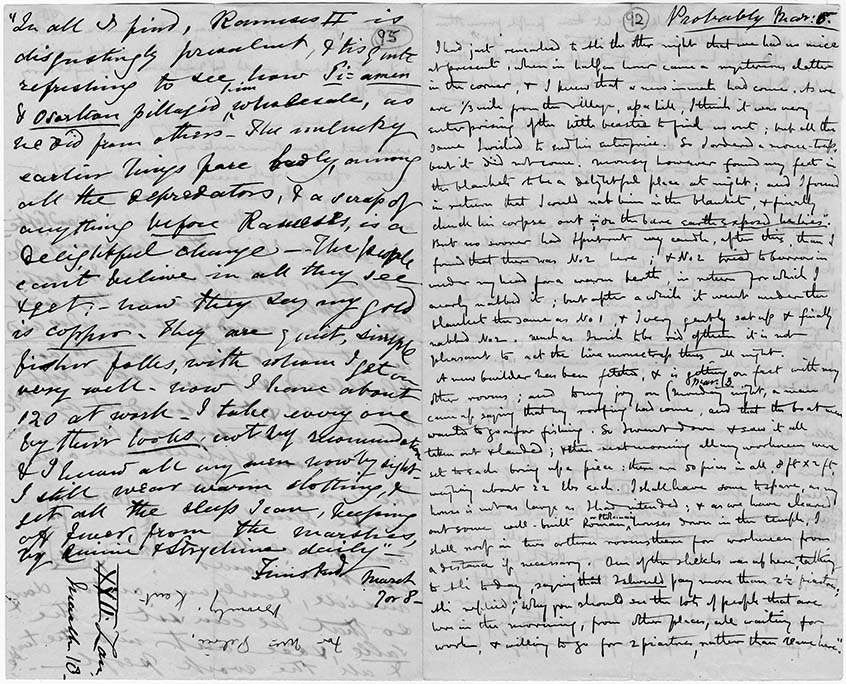 95
"In all I find, Rameses II is
disgustingly prevalent, & it is quite
refreshing to see how Si-amen
& Osorkon pillaged him wholesale, as
he did from others - The unlucky
earlier kings fare badly, among
all the depredators, & a scrap of
anything before Rameses, is a
delightful change - The people
can't believe in all they see
& get; - now they say my gold
is copper. They are quiet, simple
fisher folks, with whom I get on
very well - now I have about
120 at work - I take every one
by their looks, not by recommendation
& I know all my men now by sight -
I still wear warm clothing, &
get all the sleep I can, keeping
off fever, from the marshes,
by quinine & Strychnine daily"
Finished March
7 or 8
for Mrs Petrie,
Bromley. Kent
XVII. Zan.
March 10.
92
Probably Mar: 5.
I had just remarked to Ali the other night that we had no mice
at present, when in half an hour came a mysterious clatter
in the corner, & I knew that a new inmate had come. As we
are ⅓ mile from the village, I think it was very
enterprising of the little beastie to find us out; but all the
same I wished to end his enterprise. So I ordered a mouse-trap,
but it did not come. Mousey however found my feet in
the blankets to be a delightful place at night; and I found
in return that I could nab him in the blanket, & finally
chuck his corpse out "on the bare earth exposed he lies".
But no sooner had I put out my candle, after this, than I
found that there was No 2 here; & No 2 tried to burrow in
under my head for a warm berth, in return for which I
nearly nabbed it; but after a while it went under the
blanket the same as No 1, & I very gently sat up & finally
nabbed No 2. Much as I wish to be rid of them it is not
pleasant to act the live mousetrap thus all night.
A new builder has been fetched, & is getting on fast with my
other rooms; and to my joy on (Mar: 2) Monday night, a man
came up saying that my roofing had come, and that the boat men
wanted to go on for fishing. So I went down & saw it all
taken out & landed; & then next morning all my workmen were
set to each bring up a piece: there are 50 pieces in all 8 ft x 2 ft,
weighing about 22 lbs each. I shall have some to spare, as my
house is not as large as I had intended; & as we have cleared
out some well-built Ptolemaic Roman houses down in the temple, I
shall roof in two or three rooms there for workmen from
a distance if necessary. One of the sheikhs was up here, talking
to Ali today, saying that I should pay more than 2½ piastres,
Ali replied "Why you should see the lots of people that are
here in the morning, from other places, all waiting for
work, & willing to go for 2 piastres, rather than leave here".